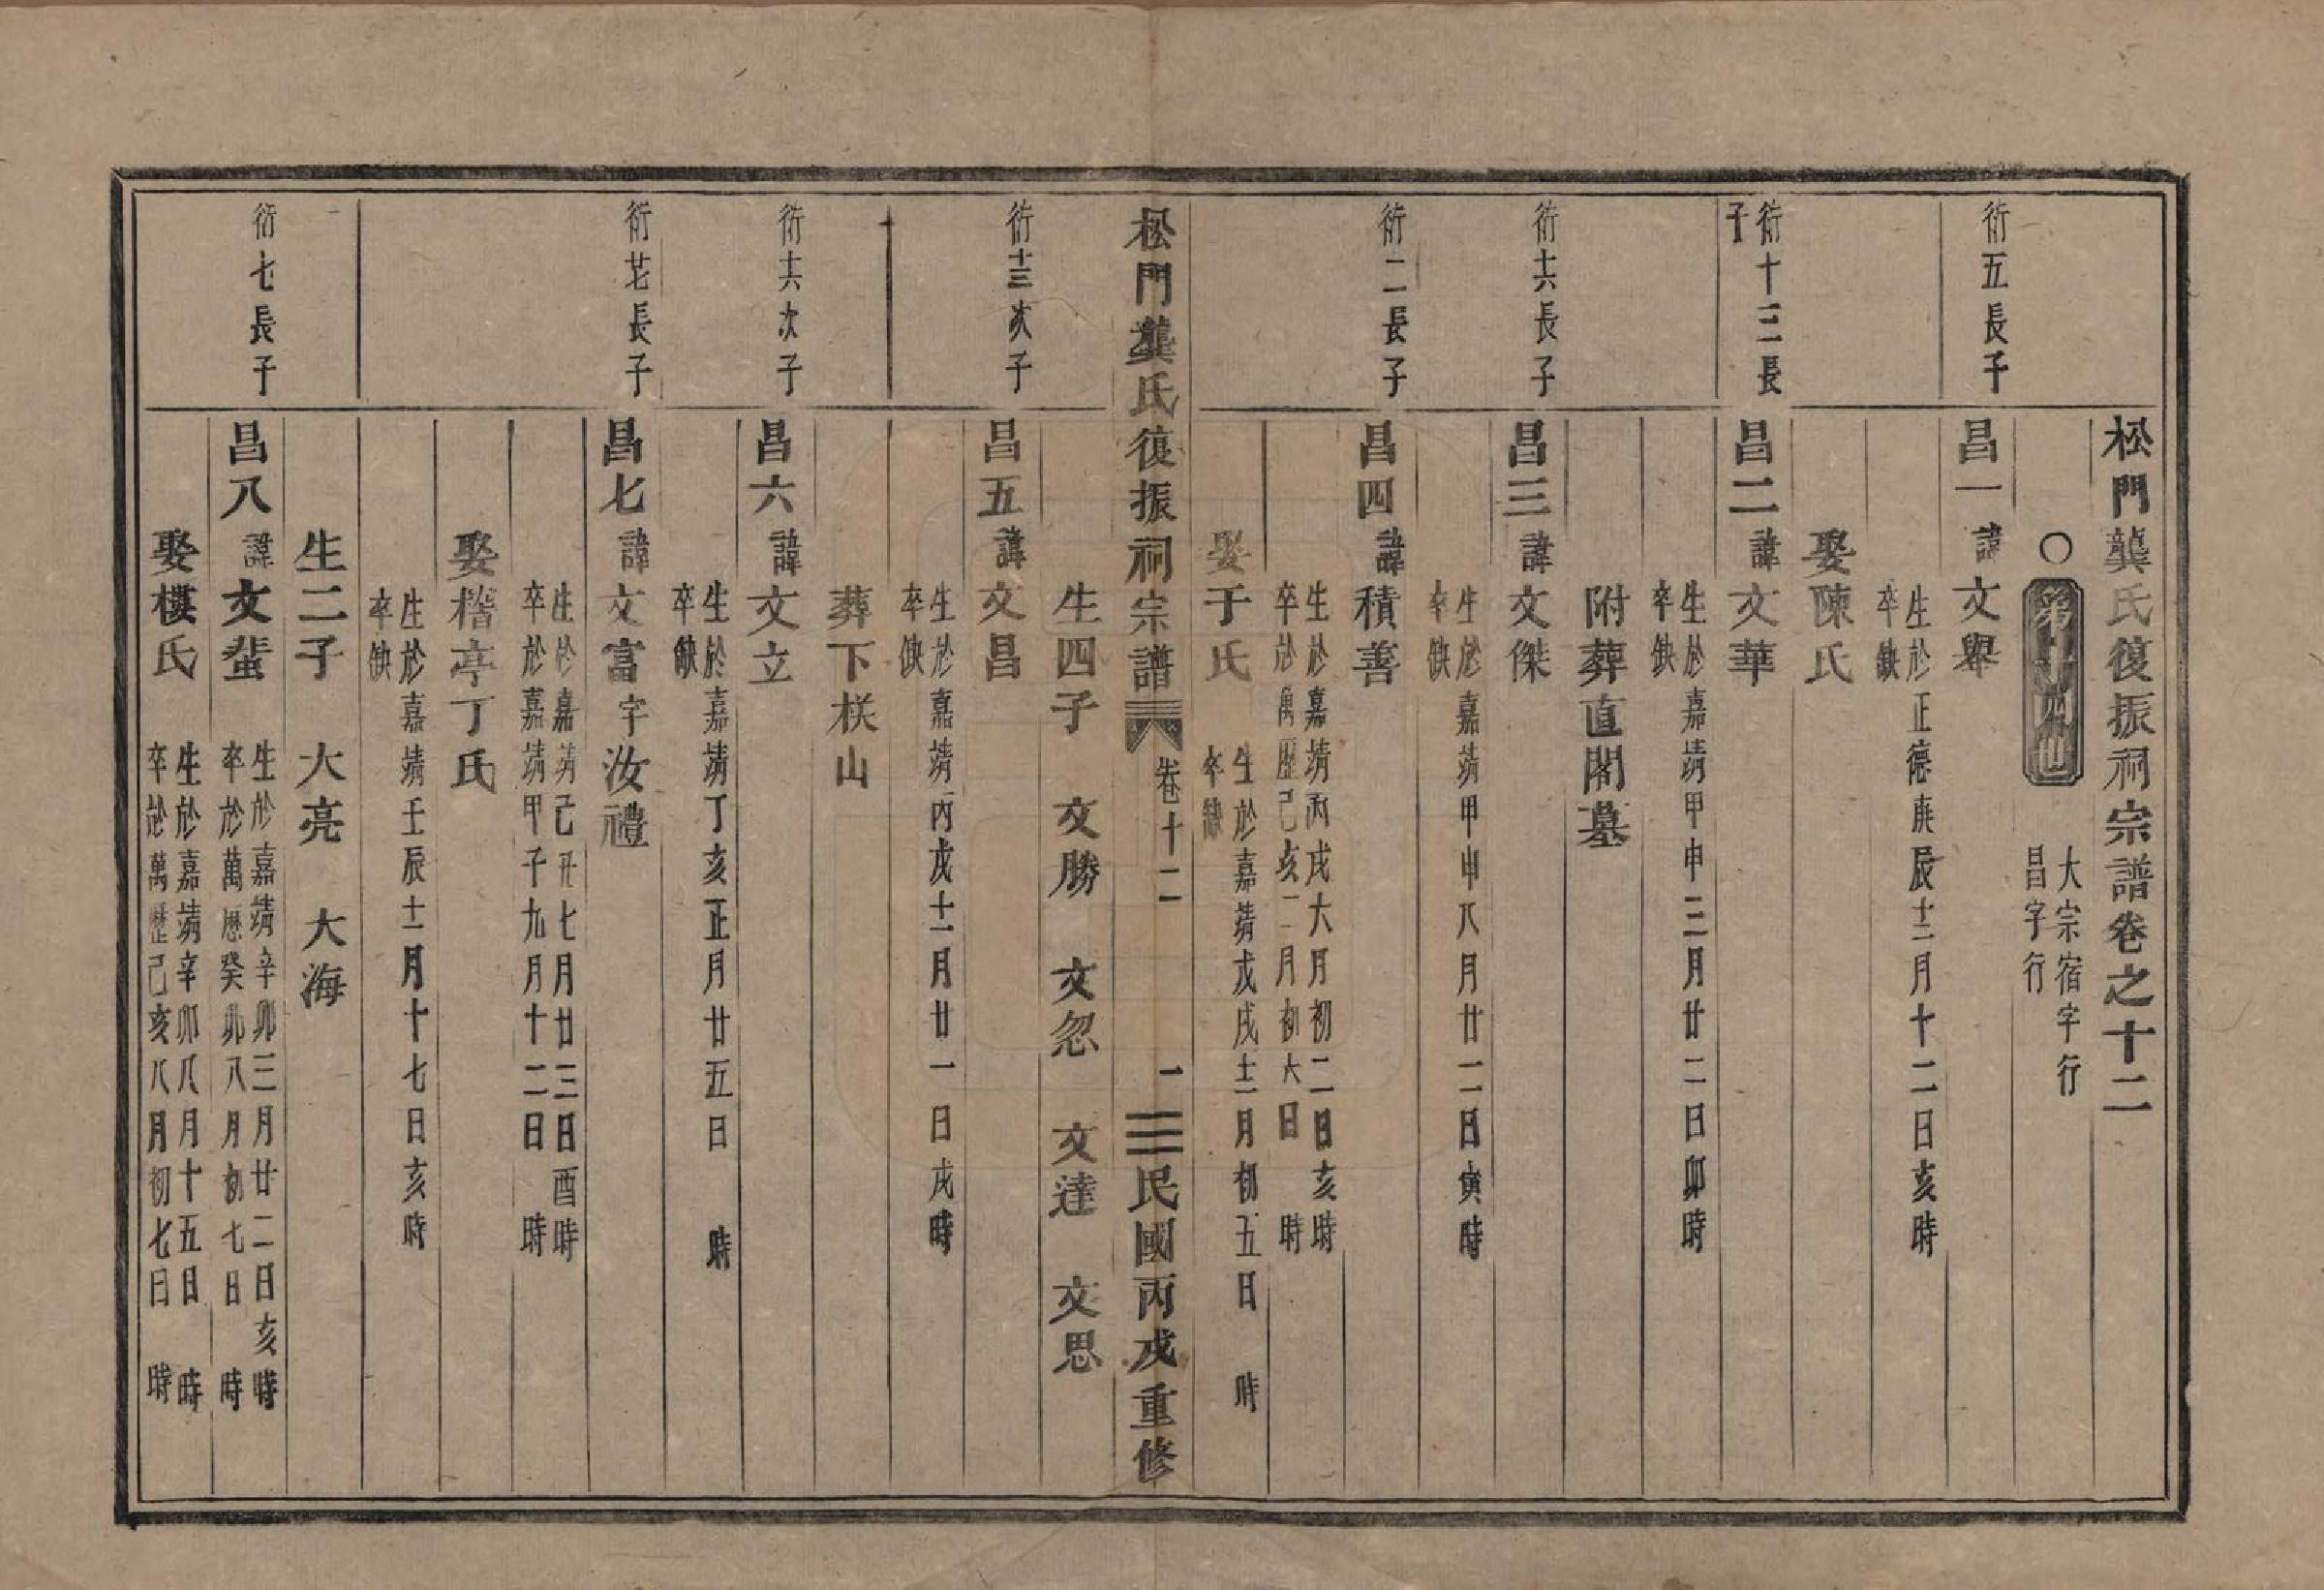 松門龔氏復振祠宗譜卷之十二
○第十四世
大宗宿字行
昌字行
衍五長子
昌一諱文舉
生於正德庚辰十二月十二日亥時
卒缺
娶陳氏
衍十三長子
昌二諱文華
生於嘉靖甲申三月廿二日卯時
卒缺
附葬直閣墓
衍十六長子
昌三諱文傑
生於嘉靖甲申八月廿二日寅時
卒缺
衍二長子
昌四諱積善
生於嘉靖丙戌六月初二日亥時
卒於萬歷己亥二月初六日 時
娶于氏
生於嘉靖戊戌十二月初五日 時
卒缺
生四子 文勝 文忽 文達 文思
松門龔氏復振祠宗譜 卷十二 一 民國丙戌重修
衍十三次子
昌五諱文昌
生於嘉靖丙戌十二月廿一日戌時
卒缺
葬下柣山
衍十六次子
昌六諱文立
生於嘉靖丁亥正月廿五日 時
卒缺
衍廿七長子
昌七諱文富字汝禮
生於嘉靖己丑七月廿三日酉時
卒於嘉靖甲子九月十二日 時
娶稽亭丁氏
生於嘉靖壬辰十二月十七日亥時
卒缺
生二子 大亮 大海
衍七長子
昌八諱文蜚
生於嘉靖辛卯三月廿二日亥時
卒於萬歷癸卯八月初七日 時
娶樓氏
生於嘉靖辛卯八月十五日 時
卒於萬歷己亥八月初七日 時